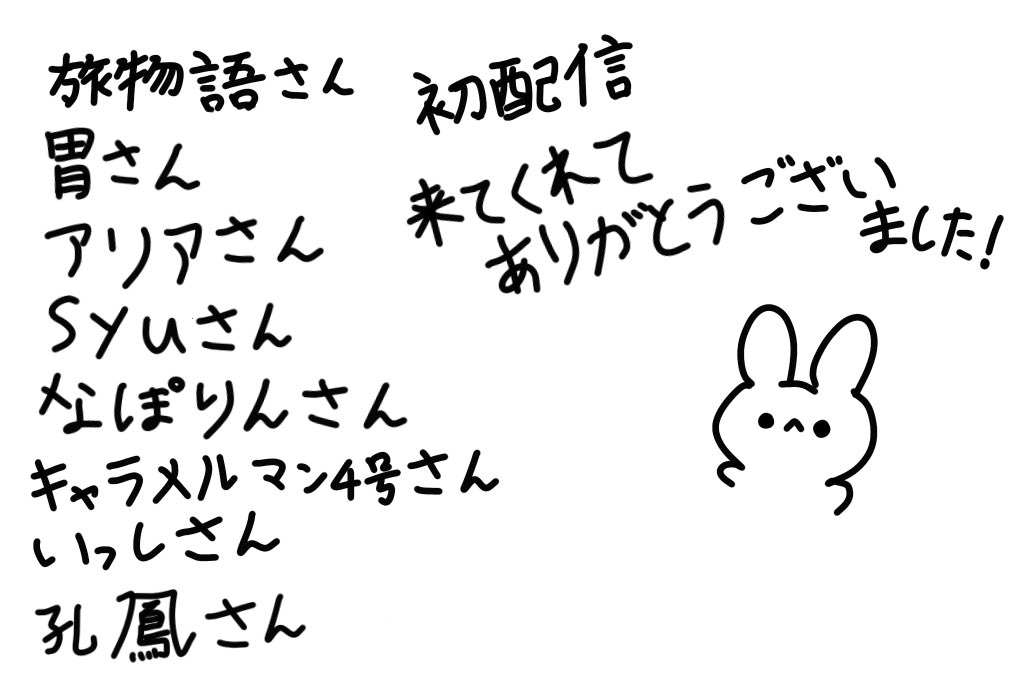 旅物語さん
胃さん
アリアさん
syuさん
なぽりんさん
キャラメルマン4号さん
いっしさん
孔鳳さん
初配信
来てくれて
ありがとうござい
ました!